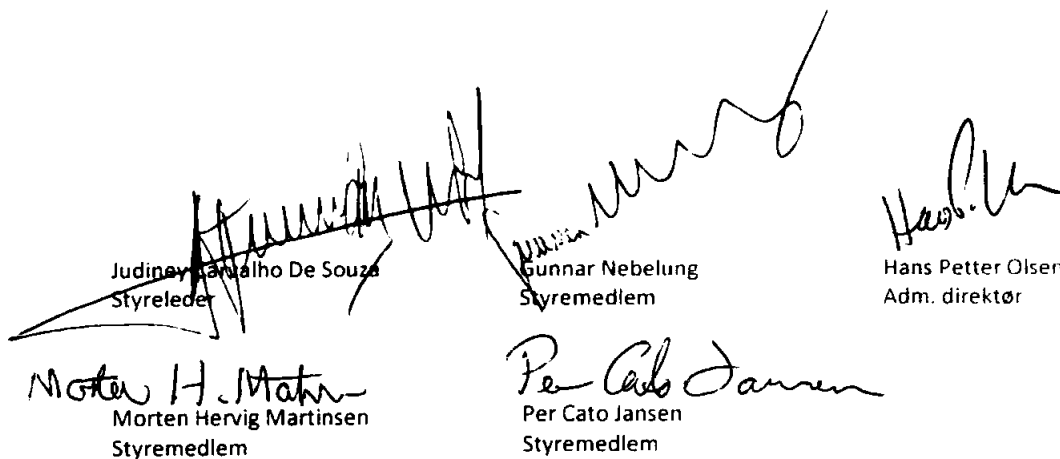 Judiney Carvalho De Souza
Styreleder
Gunnar Nebelung
Styremedlem
Hans Petter Olsen
Adm. direktør
Morten H. Martin
Morten Hervig Martinsen
Styremedlem
Per Cato Jansen
Per Cato Jansen
Styremedlem